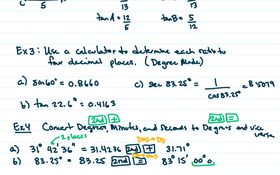 C 5 13 13
tan A = 12/5 tan B = 5/12
Ex 3: Use a calculator to determine each ratio to
four decimal places. (Degree Mode)
a) sin 60° = 0.8660 c) sec 83.25° = 1/cos 83.25° = 8.5079
b) tan 22.6° = 0.4163
2nd + 2nd =
Ex 4 Convert Degrees, Minutes, and Seconds to Degrees and vice
versa
2 places DMS→DD
a) 31° 42'36" = 31.4236 2nd + 31.71°
b) 83.25° = 83.25 2nd = 83° 15' 00" 0